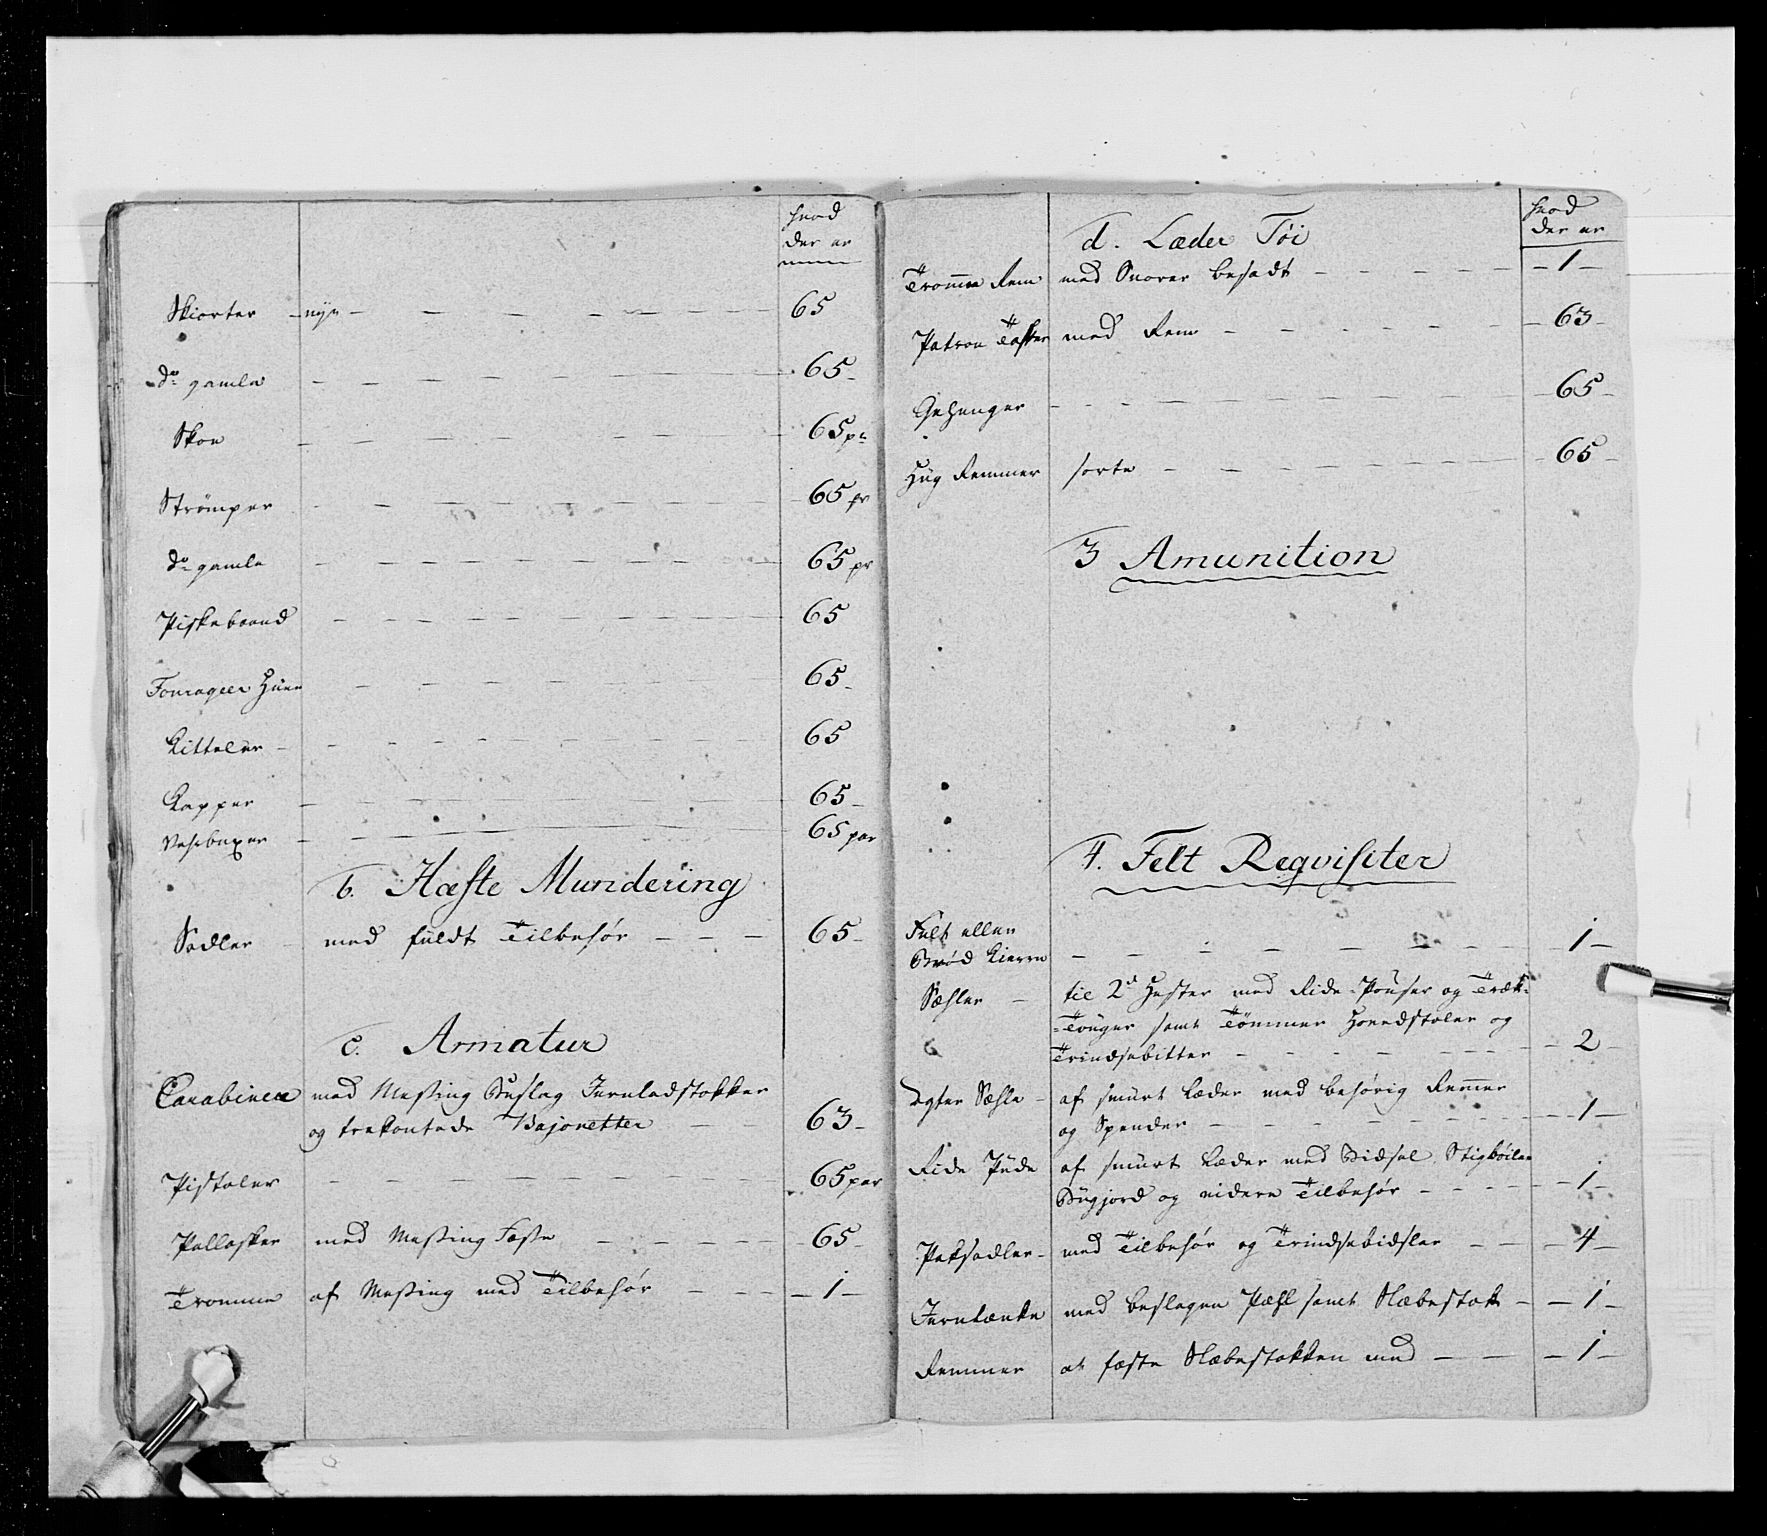 hvad
der er
Skiorter nye 65
do gamle 65
Skoe 65 pr
Strömper 65 pr
do gamle 65 pr
Piskebaand 65
Fourageer Huer 65
Kitteler 65
Kapper 65
65 par
b. Hæste Mundering
Sadler med fuldt Tilbehør 65
c. Armatur
Carabiner med Messing Beslag Jernladstokker
og trekantede Bajonetter 63
Pistoler 65 par
Pallasker med Messing Fæste 65
Tromme af Messing med Tilbehør 1
hvad
der er
d. Læder Töi
Tromme Rem med Snorer besadt 1
Patron Tasker med Rem 63
Gehenger 65
Hug Remmer sorte 65
3 Amunition
4. Felt Reqvisiter
Felt eller
Brød Kierre 1
Sæhler til 2de Hester med Ride og Træk-
Touger samt Tømmer Hovedstoler og
Trindsebitter 2
Sæhle af smurt Læder med behørig Remmer
og Spender 1
Ride Püde af smurt Læder med Bidsel Stigbøiler
Bugjord og videre Tilbehør 1
Paksadler med Tilbehør og Trindsebidsler 4
Jernlænke med beslagen Pæhl samt Slæbestok 1
Remmer at fæste Slæbestokken med 1